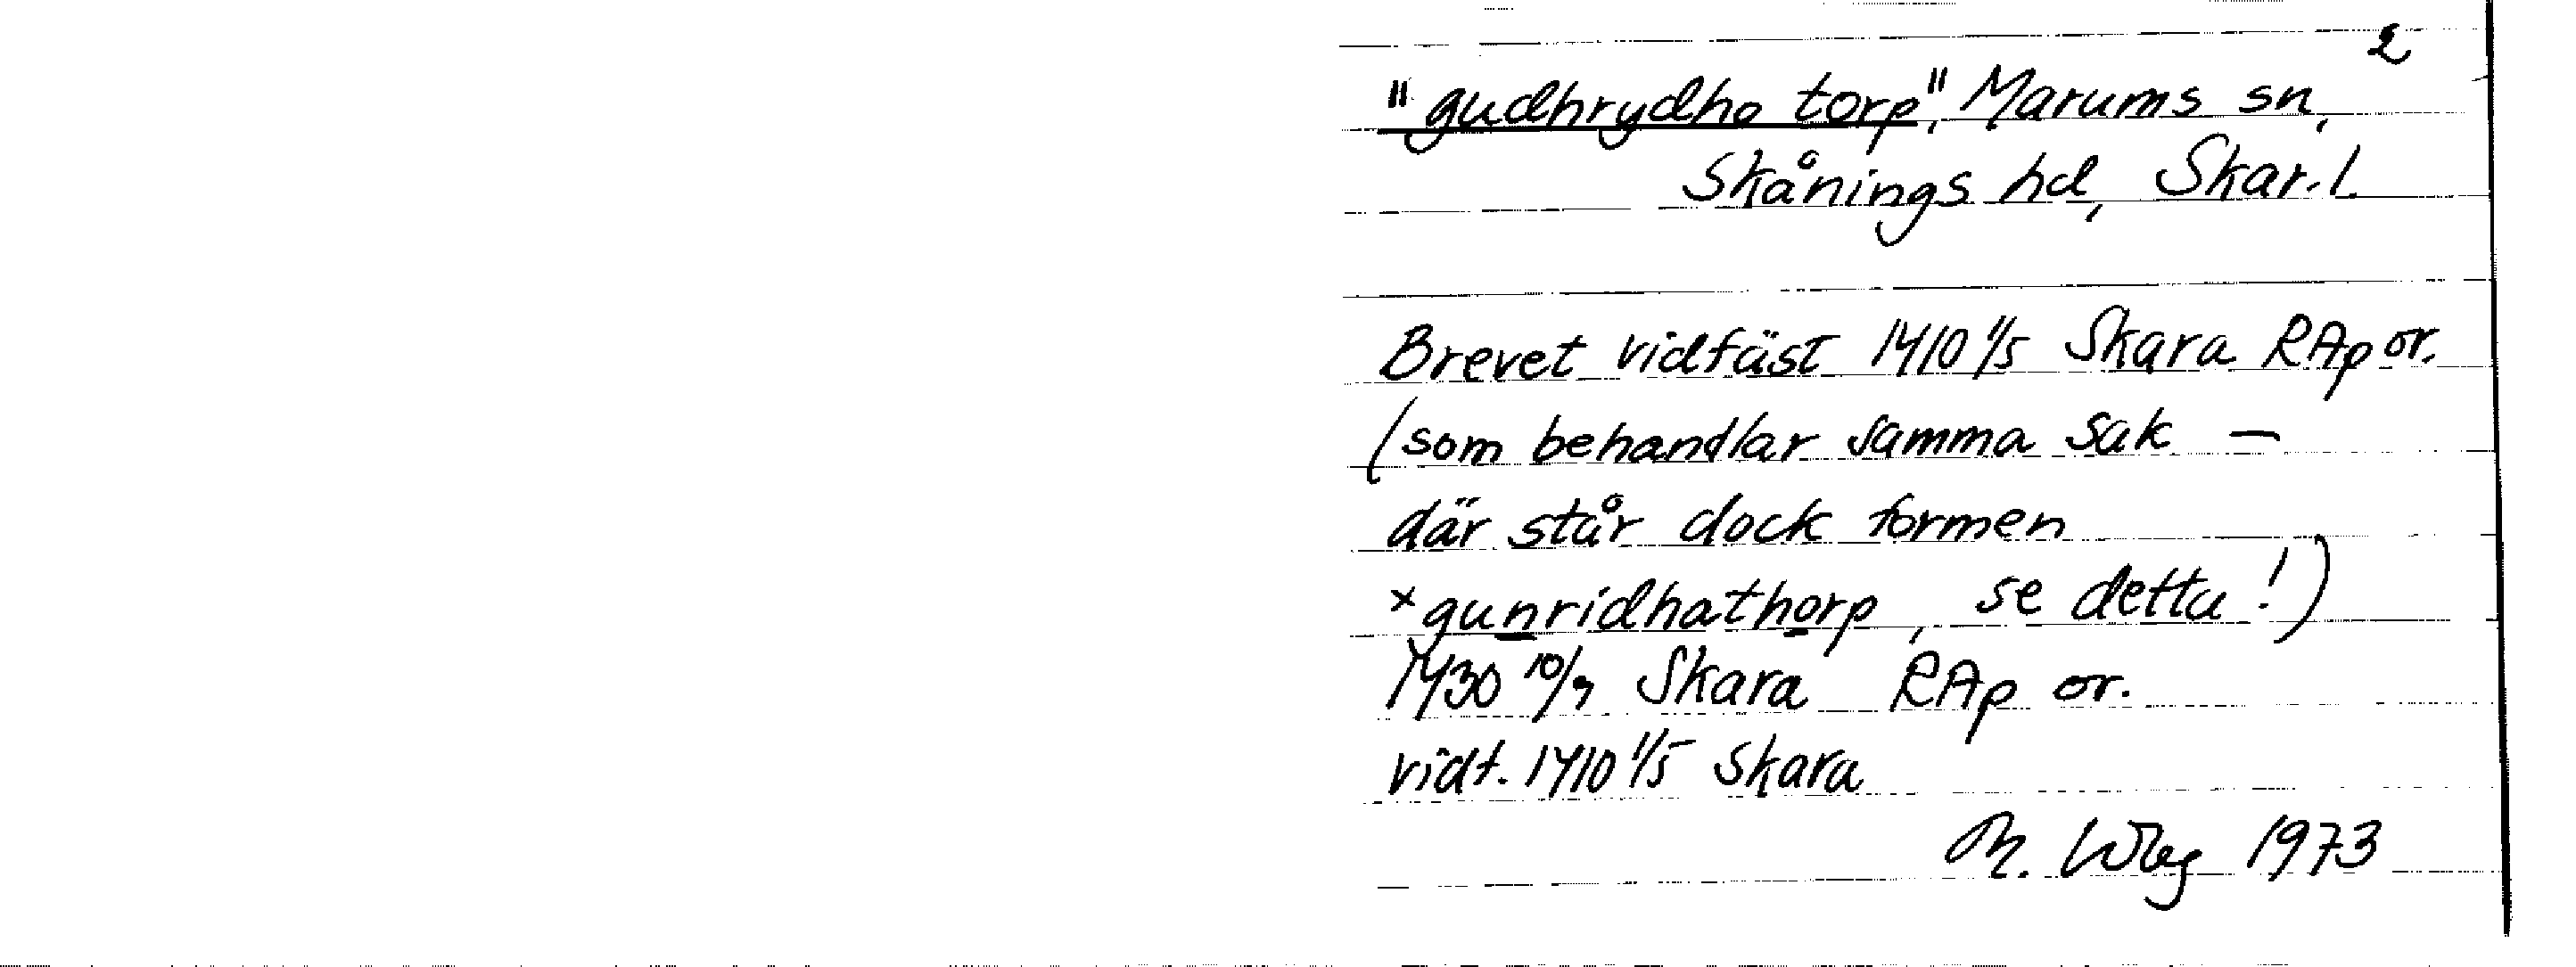 2
"gudhrydho torp", Marums sn,
Skånings hd, Skar. l.
Brevet vidfäst 1410 1/5 Skara RAp or.
(som behandlar samma sak —
där står dock formen
× gunridhathorp, se detta!)
1430 10/9 Skara RAp or.
vidf. 1410 1/5 Skara
1973